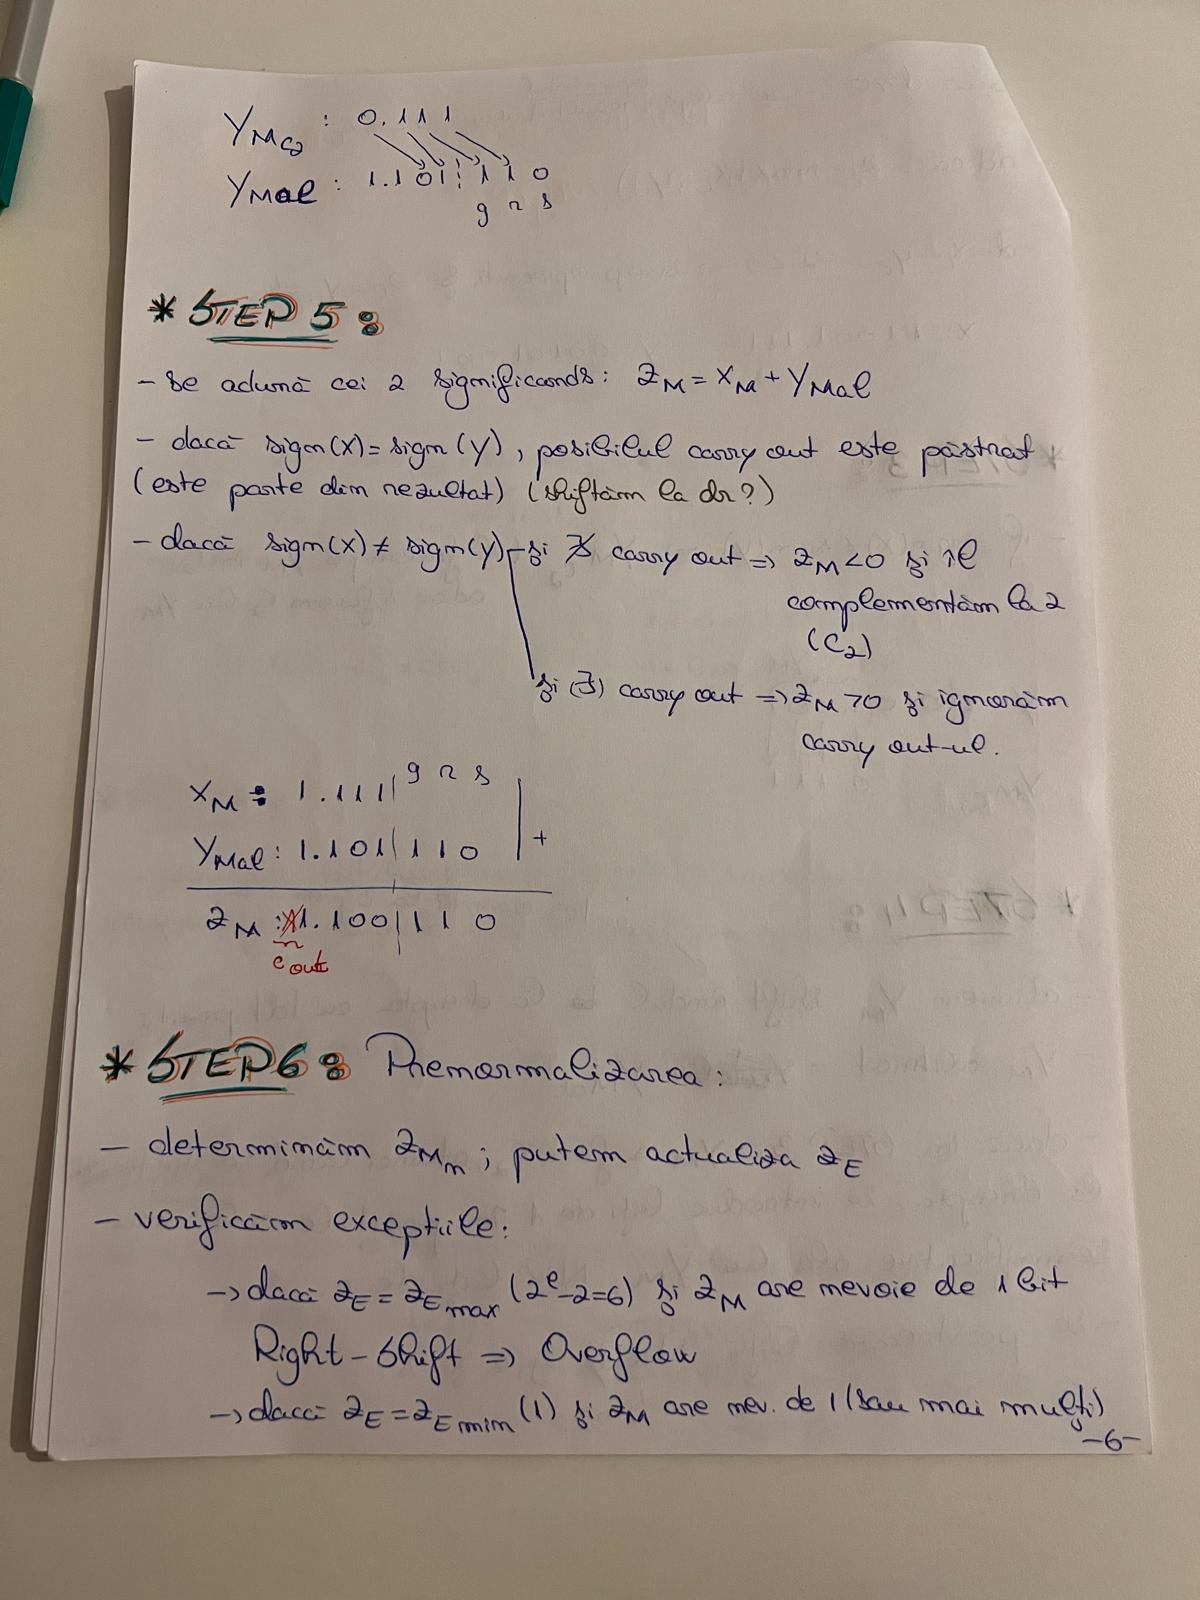 YMC2 : 0.111
YMal : 1.101 110
g r s
* STEP 5:
- se adună cei 2 significands: ZM = XM + YMal
- dacă sign(X) = sign(Y), posibilul carry out este păstrat
(este parte din rezultat) (shiftăm la dr?)
- dacă sign(X) ≠ sign(Y) și ∄ carry out => ZM < 0 și îl
complementăm la 2
(C2)
și (∃) carry out => ZM > 0 și ignorăm
carry out-ul.
g r s
XM : 1.111|
YMal : 1.101|110 +
ZM : 11.100|110
cout
* STEP 6: Prenormalizarea:
- determinăm ZMn ; putem actualiza ZE
- verificăm excepțiile:
-> dacă ZE = ZEmax (2^e-2=6) și ZM are nevoie de 1 bit
Right-Shift => Overflow
-> dacă ZE = ZEmin (1) și ZM are nev. de 1 (sau mai mulți)
-6-